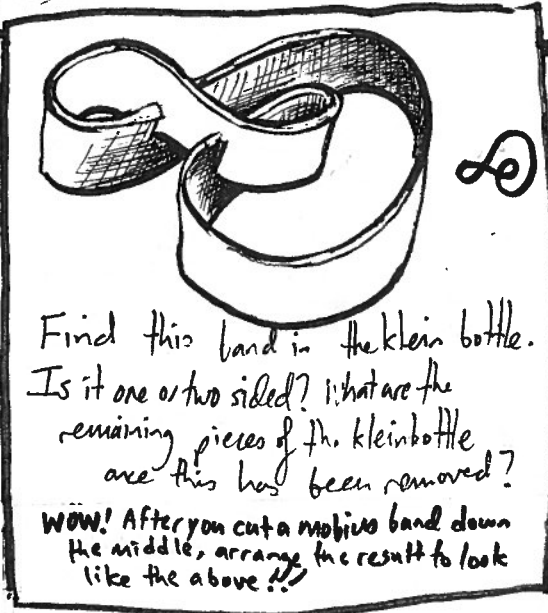 Find this band in the klein bottle.
Is it one or two sided? What are the
remaining pieces of the kleinbottle
once this has been removed?
WOW! After you cut a mobius band down
the middle, arrange the result to look
like the above!!